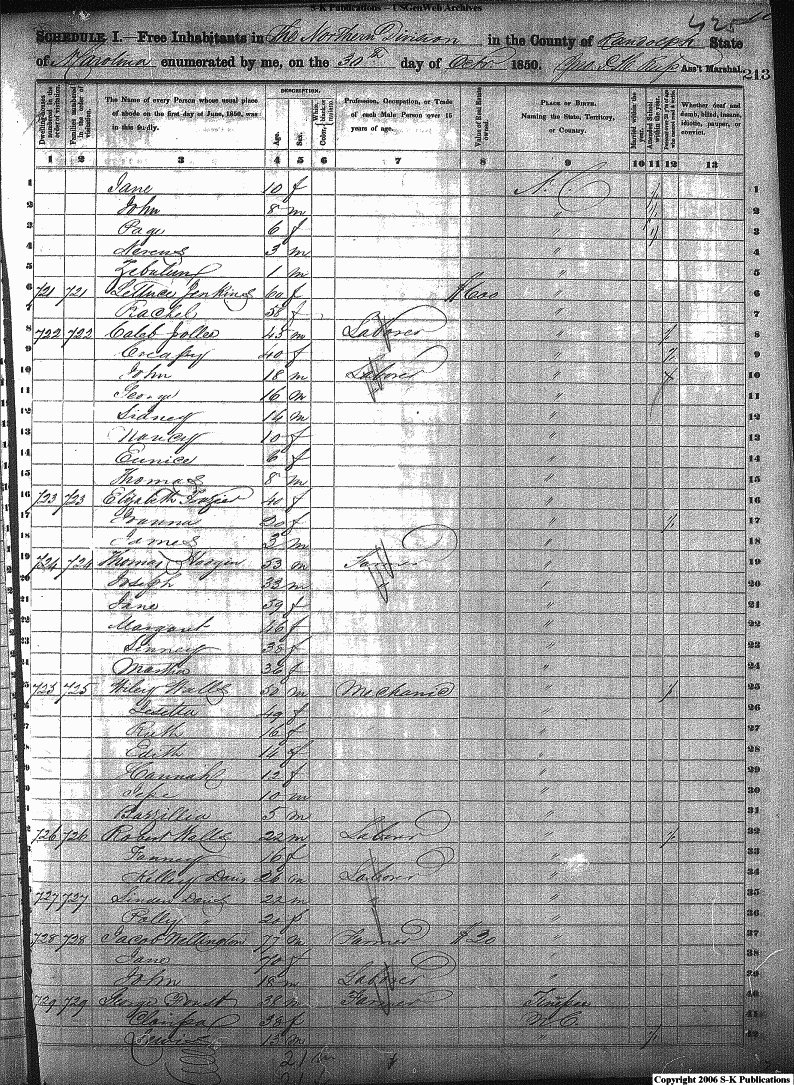 S-K Publications – USGenWeb Archives
Schedule I.—Free Inhabitants in The Northern Division in the County of Randolph State
of N Carolina enumerated by me, on the 30th day of Octr 1850. Ass't Marshal. 213
Dwelling-houses numbered in the order of visitation. Families numbered in the order of visitation. The Name of every Person whose usual place of abode on the first day of June, 1850, was in this family. Description. Age. Sex. Color, White, black, or mulatto. Profession, Occupation, or Trade of each Male Person over 15 years of age. Value of Real Estate owned. Place of Birth. Naming the State, Territory, or Country. Married within the year. Attended School within the year. Persons over 20 y'rs of age who cannot read & write. Whether deaf and dumb, blind, insane, idiotic, pauper, or convict.
1 2 3 4 5 6 7 8 9 10 11 12 13
1 Jane 10 f N. C / 1
2 John 8 m " / 2
3 Page 6 f " / 3
4 Nereus 3 m " 4
5 Zebulung 1 m " 5
6 721 721 Lettuce Jenkins 60 f $600 " 6
7 Rachel 58 f " 7
8 722 722 Caleb 45 m Laborer " / 8
9 40 f " / 9
10 John 18 m Laborer " 10
11 George 16 m " 11
12 Sidney 14 m " 12
13 Nancy 10 f " 13
14 Eunice 6 f " 14
15 Thomas 8 m " 15
16 723 723 Elizabeth Frazier 40 f " 16
17 Joanna 20 f " / 17
18 James 3 m " 18
19 724 724 Thomas 53 m Farmer " 19
20 Joseph 33 m " 20
21 Jane 59 f " 21
22 Margaret 46 f " 22
23 38 f " 23
24 Martha 36 f " 24
25 725 725 Wiley Walls 50 m Mechanic " / 25
49 f "
Ruth 16 f " 27
Edith 14 f " 28
Hannah 12 f " 29
10 m " 30
Barzillia 5 m " 31
726 726 Robert Walls 22 m Laborer " / 32
16 f " 33
Davis 26 m Laborer " 34
727 727 Davis 22 m " 35
Polly 21 f " 36
728 728 Jacob Wellington 77 m Farmer $20 " 37
Jane 70 f " 38
John 18 m Laborer " 39
729 729 George 38 m Farmer 40
38 f N. C. 41
Lewis 13 m " / 42
21
Copyright 2006 S-K Publications